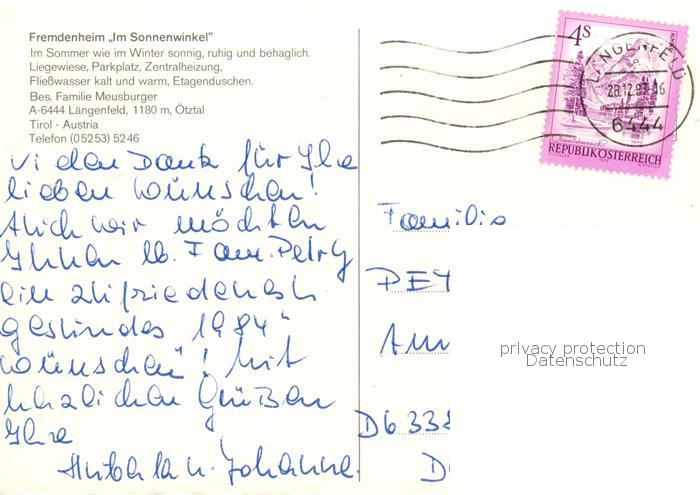 Fremdenheim „Im Sonnenwinkel"
Im Sommer wie im Winter sonnig, ruhig und behaglich.
Liegewiese, Parkplatz, Zentralheizung,
Fließwasser kalt und warm, Etagenduschen.
Bes. Familie Meusburger
A-6444 Längenfeld, 1180 m, Ötztal
Tirol - Austria
Telefon (05253) 5246
Vielen Dank für Ihre
lieben Wünschen!
Auch wir möchten
Ihnen lb. Fam. Petry
ein zufriedenes
gesundes 1984"
wünschen"! Mit
herzlichen Grüßen
Ihre
u. Johanna.
4S
REPUBLIK ÖSTERREICH
LÄNGENFELD
28.12.83-16
6444
Familie
PET
Am
D6338
D
privacy protection
Datenschutz